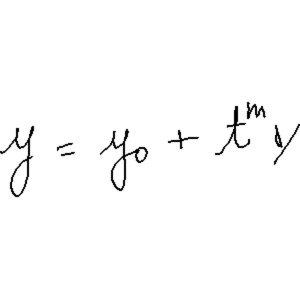 y = y₀ + t^m y